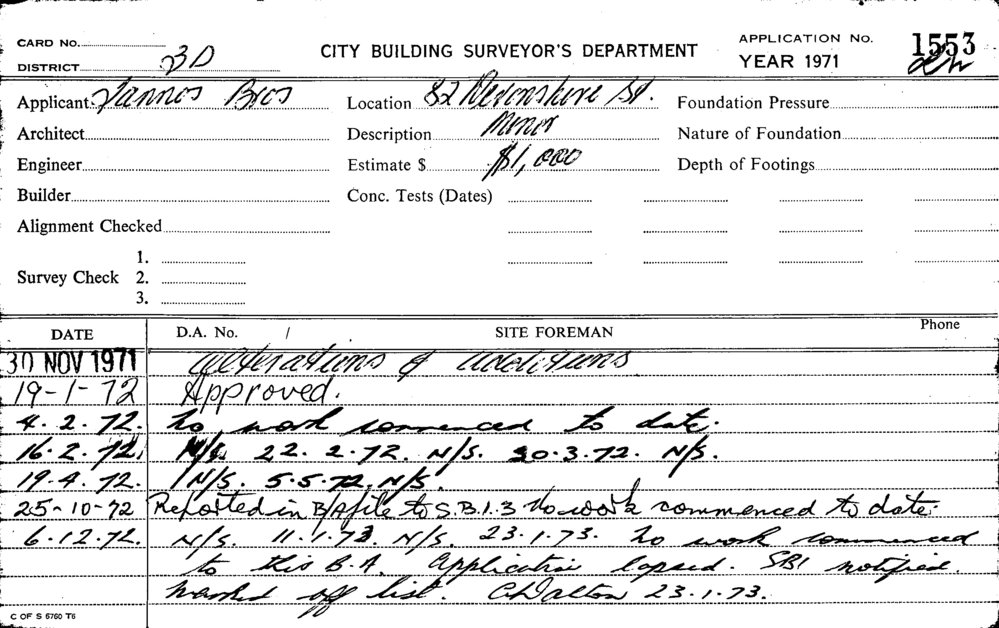 CARD No.
DISTRICT 3D
CITY BUILDING SURVEYOR'S DEPARTMENT
APPLICATION No. 1553
YEAR 1971
Applicant: Yannos Bros Location 82 Devonshire St. Foundation Pressure
Architect Description Minor Nature of Foundation
Engineer Estimate $ $1,000 Depth of Footings
Builder Conc. Tests (Dates)
Alignment Checked
1.
Survey Check 2.
3.
DATE D.A. No. / SITE FOREMAN Phone
30 NOV 1971 Alterations & additions
19-1-72 Approved.
4.2.72. No work commenced to date.
16.2.72. N/S. 22.2.72. N/S. 30.3.72. N/S.
19.4.72. N/S. 5.5.72. N/S.
25-10-72 Reported in B/A file to S.B.1.3 No work commenced to date.
6.12.72. N/S. 11.1.73. N/S. 23.1.73. No work commenced
to this B.A. Application lapsed. SBI notified.
Marked off list. C Dalton 23.1.73.
C OF S 6760 T6